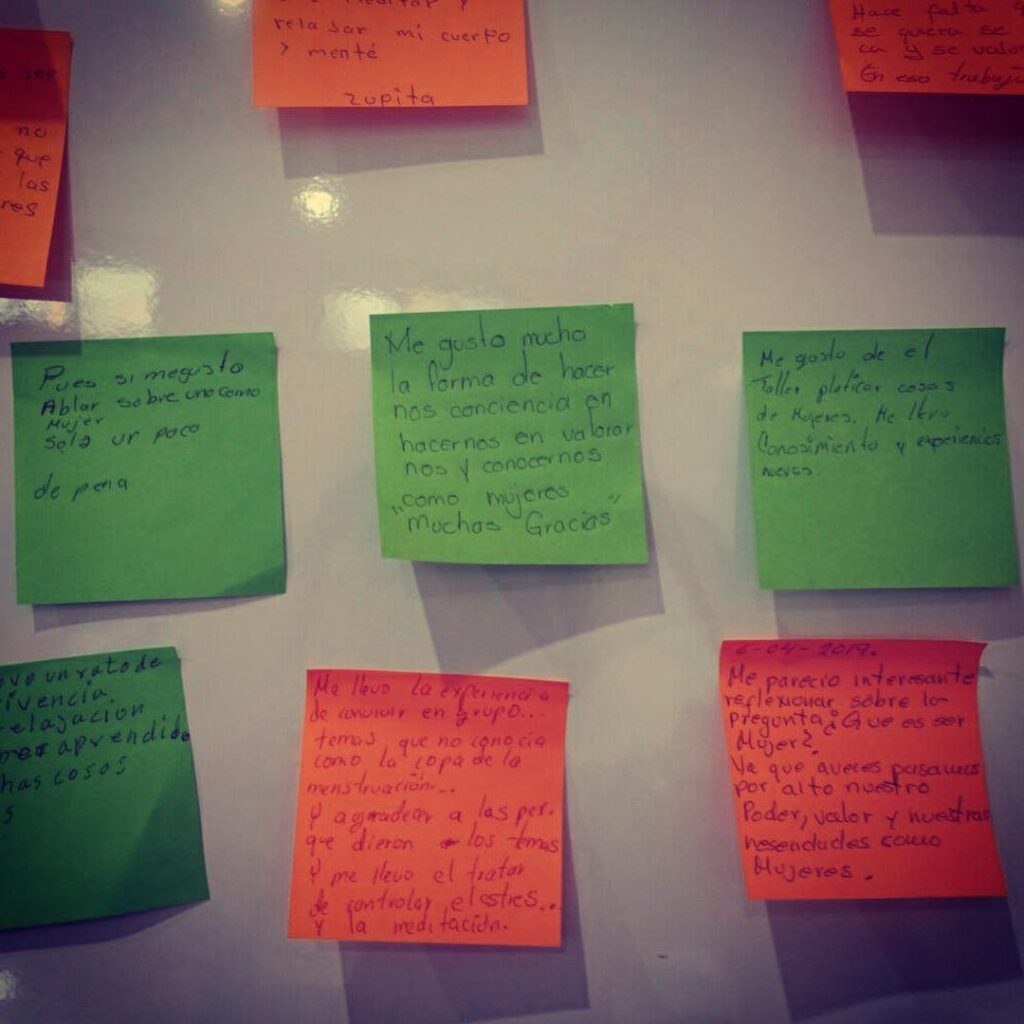 relajar mi cuerpo
y menté
zupita
Hace falta
se quiera se
ca y se valo
En eso trabaj
ser
no
que
las
res
Pues si megusto
Ablar sobre uno como
Mujer
Solo un poco
de pena
Me gusto mucho
la forma de hacer
nos conciencia en
hacernos en valorar
nos y conocernos
como mujeres
"Muchas Gracias"
Me gusto de el
Taller platicar cosas
de Mujeres. Me llevo
Conosimiento y experiencias
nuevas
evo un rato de
ivencia
elajacion
aprendido
has cosos
s
Me llevo la experiencia
de convivir en grupo...
temas que no conocia
como la copa de la
menstruación...
Y agradecer a las per.
que dieron los temas
Y me llevo el tratar
de controlar el estres...
Y la meditación.
6-04-2019.
Me parecio interesante
reflexionar sobre la
pregunta ¿Que es ser
Mujer?
Ya que aveces pasamos
por alto nuestro
Poder, valor y nuestras
nesesidades como
Mujeres.